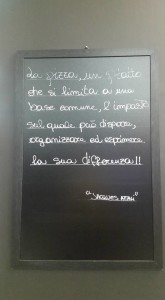 La pizza, un piatto
che si limita a una
base comune, l'impasto
sul quale può disporre,
organizzare ed esprimere
la sua differenza!!
"
"